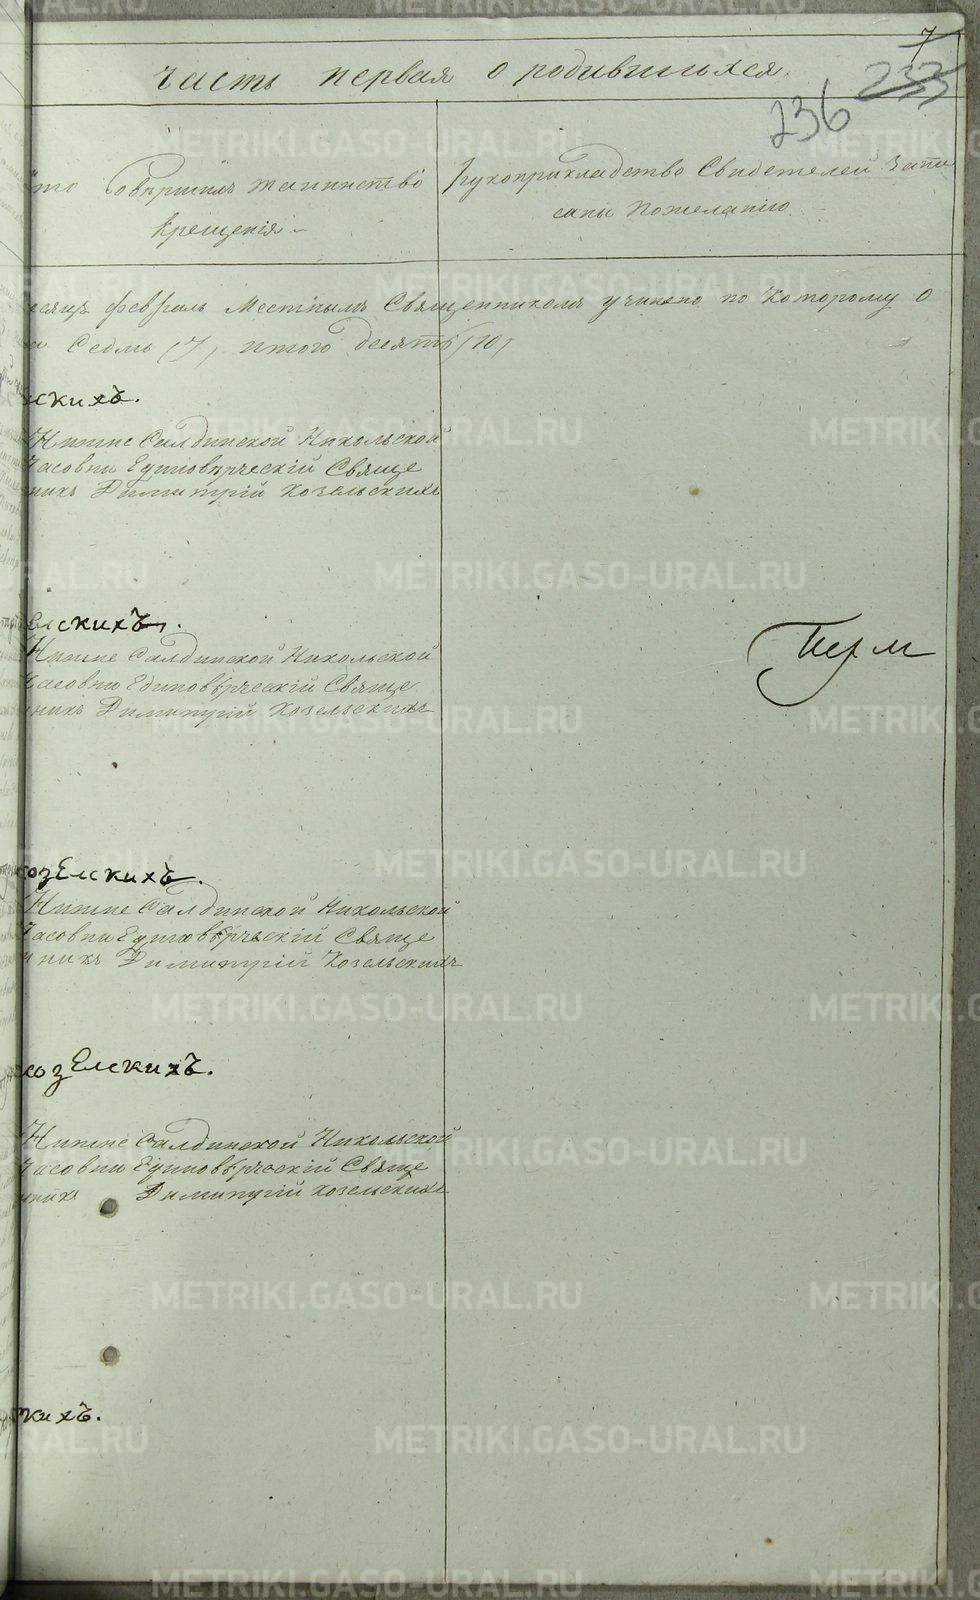 7
Часть первая о родившихся.
233
236
Кто Совершилъ таинство
Крещенія
Рукоприкладство Свидетелей Запи
саны Пожеланію
есяцъ февраль Местнымъ Священникомъ учинено по Которому о
Седмь (7) итого десять (10)
скихъ.
Нижне Салдинской Никольской
Часовни Единоверческій Свяще
никъ Димитрій Козельскихъ
елскихъ.
Нижне Салдинской Никольской
Часовни Единоверческій Свяще
никъ Димитрій Козельскихъ
Перм
козелскихъ.
Нижне Салдинской Никольской
Часовни Единоверческій Свяще
никъ Димитрій Козельскихъ
козелскихъ.
Нижне Салдинской Никольской
Часовни Единоверческій Свяще
никъ Димитрій Козельскихъ
кихъ.
METRIKI.GASO-URAL.RU